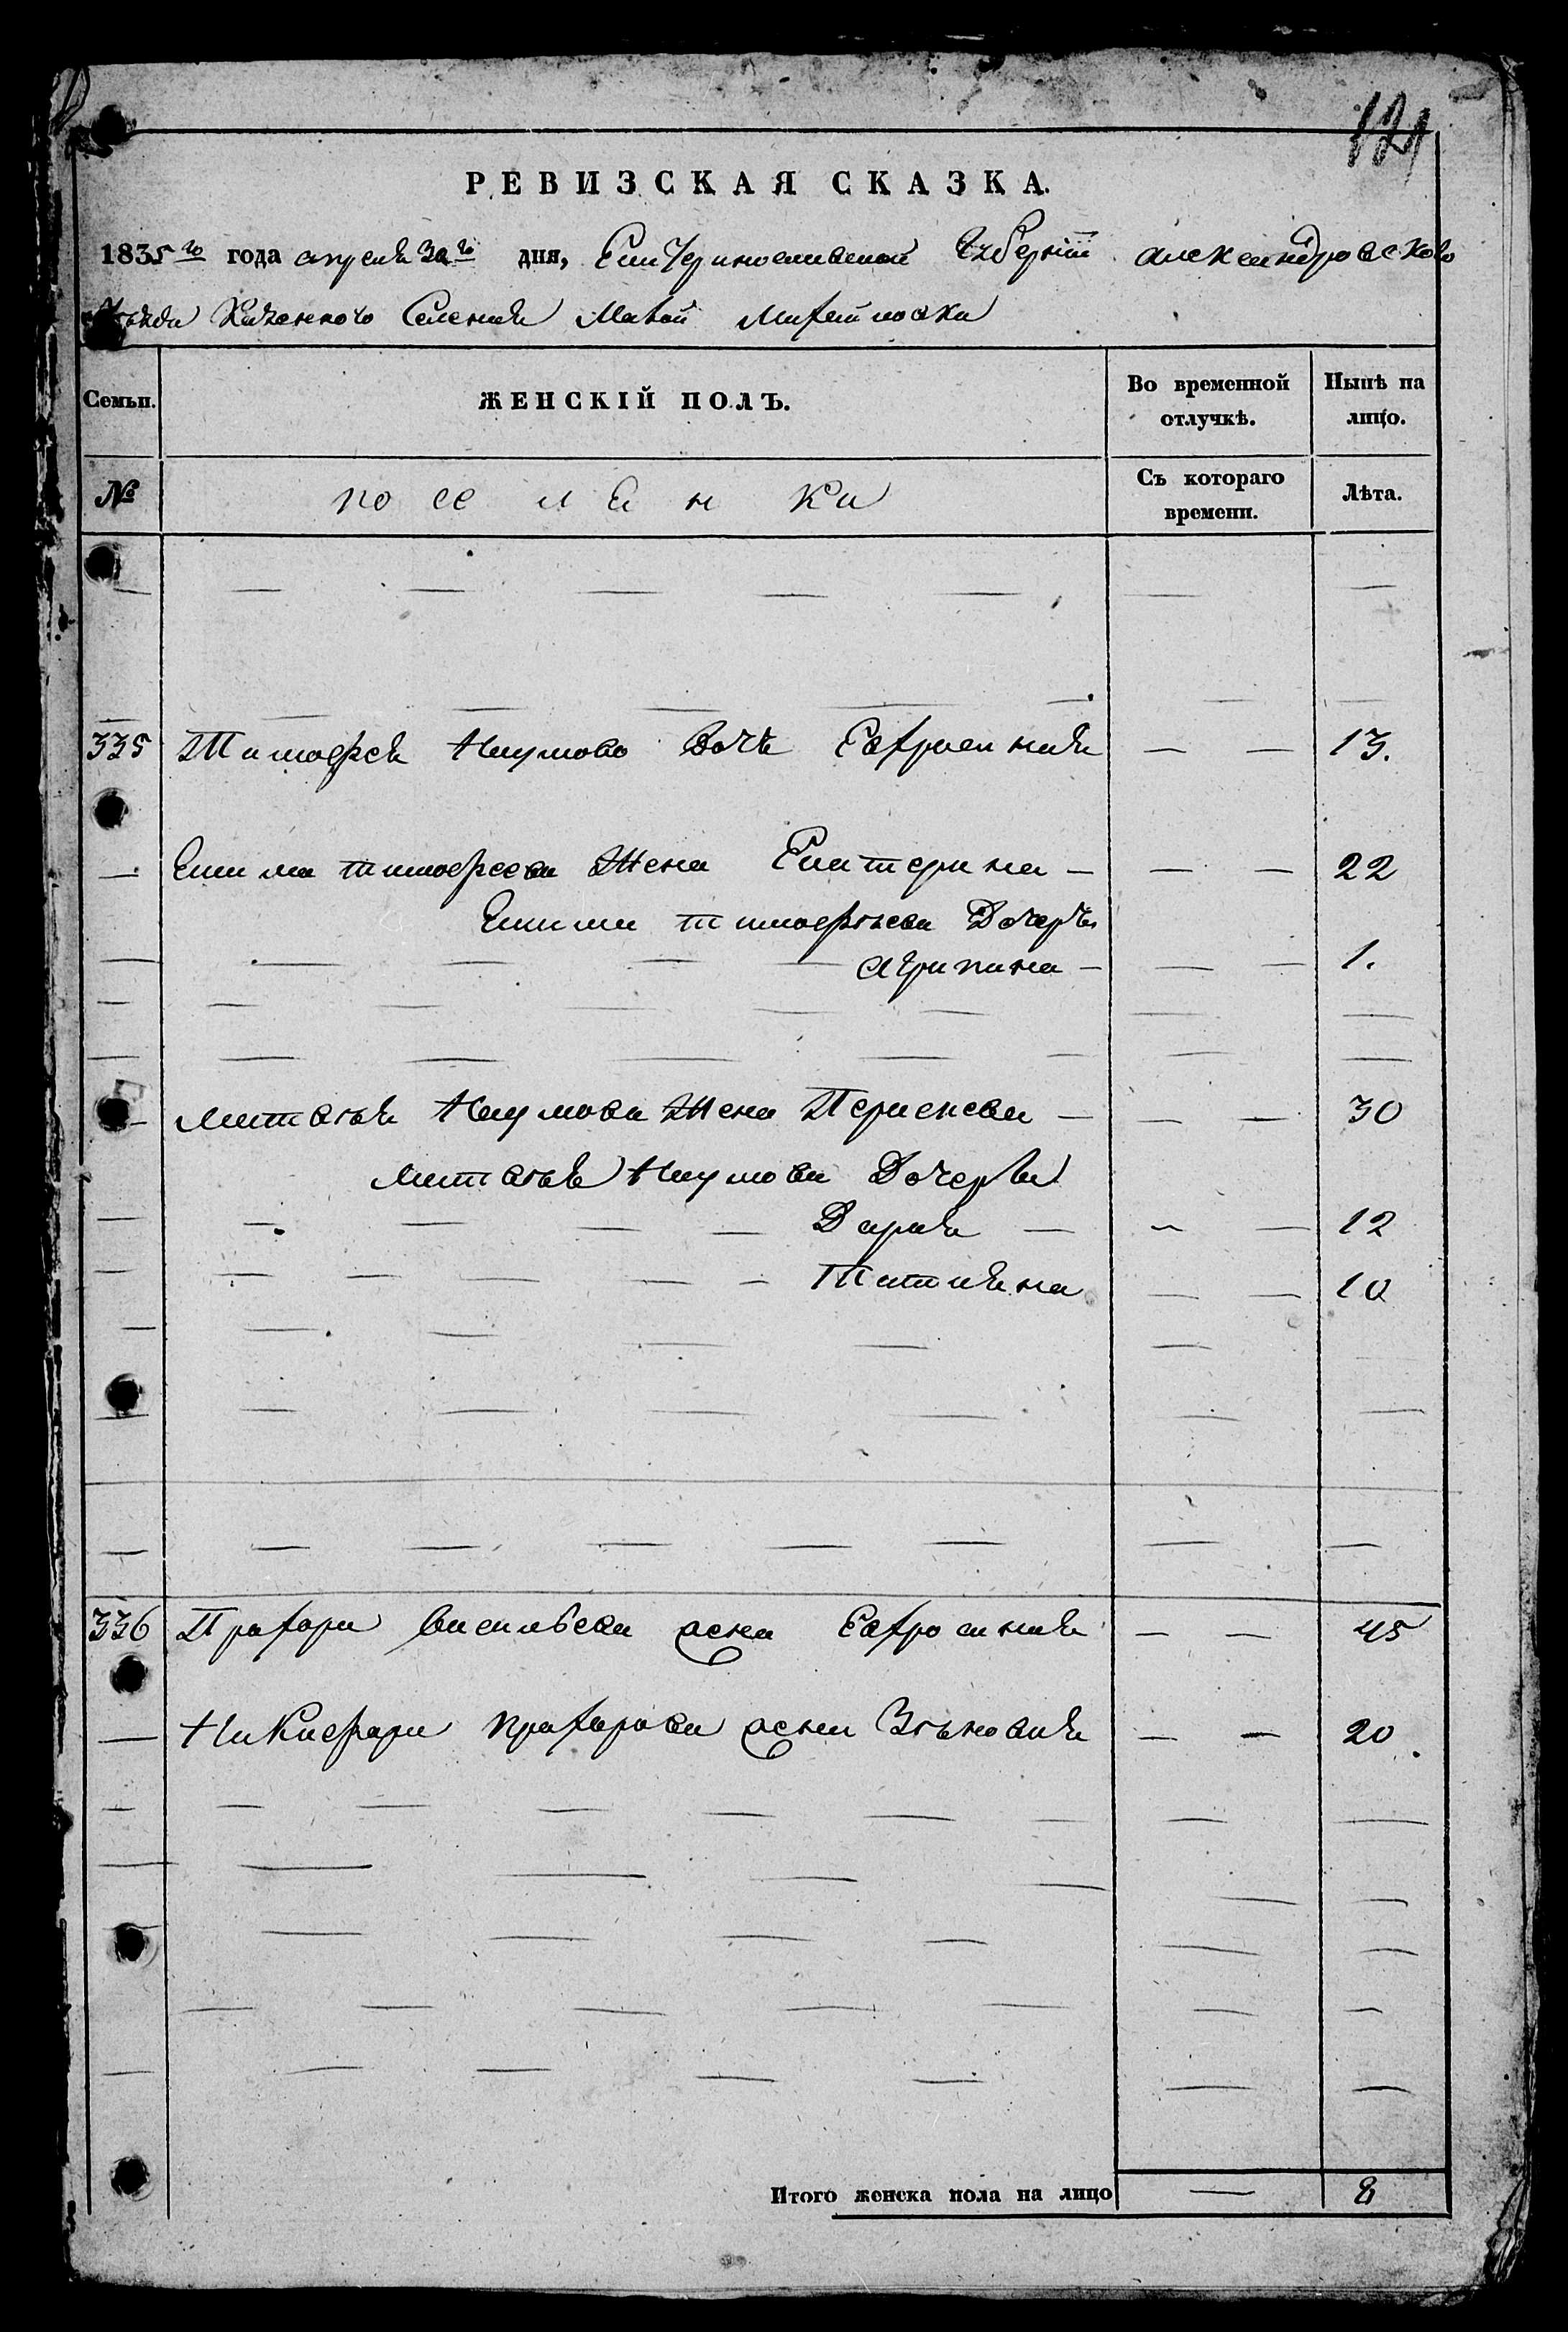 121
РЕВИЗСКАЯ СКАЗКА.
1835го года апреля 30го дня, Екатериносливской Губернии Александровского
Уезда Казенного Селения Малой Михайловки
Семьи. ЖЕНСКІЙ ПОЛЪ. Во временной отлучкѣ. Нынѣ на лицо.
№ поселенки Съ котораго времени. Лѣта.
335 Тимофея Наумова дочь Евфросиния — — 13.
— Екима тимофеева Жена Екатерина — — — 22
Екима тимофъева Дочеръ
— Агрипина — — — 1.
— Матвѣя Наумова Жена Парасковя — — — 30
Матвѣя Наумова Дочери
— Дария — — — 12
— Татияна — — 10
336 Прахора Васильева жена Евфросиния — — 45
— Никифара прахорова жена Зѣновия — — 20.
Итого женска пола на лицо — 8